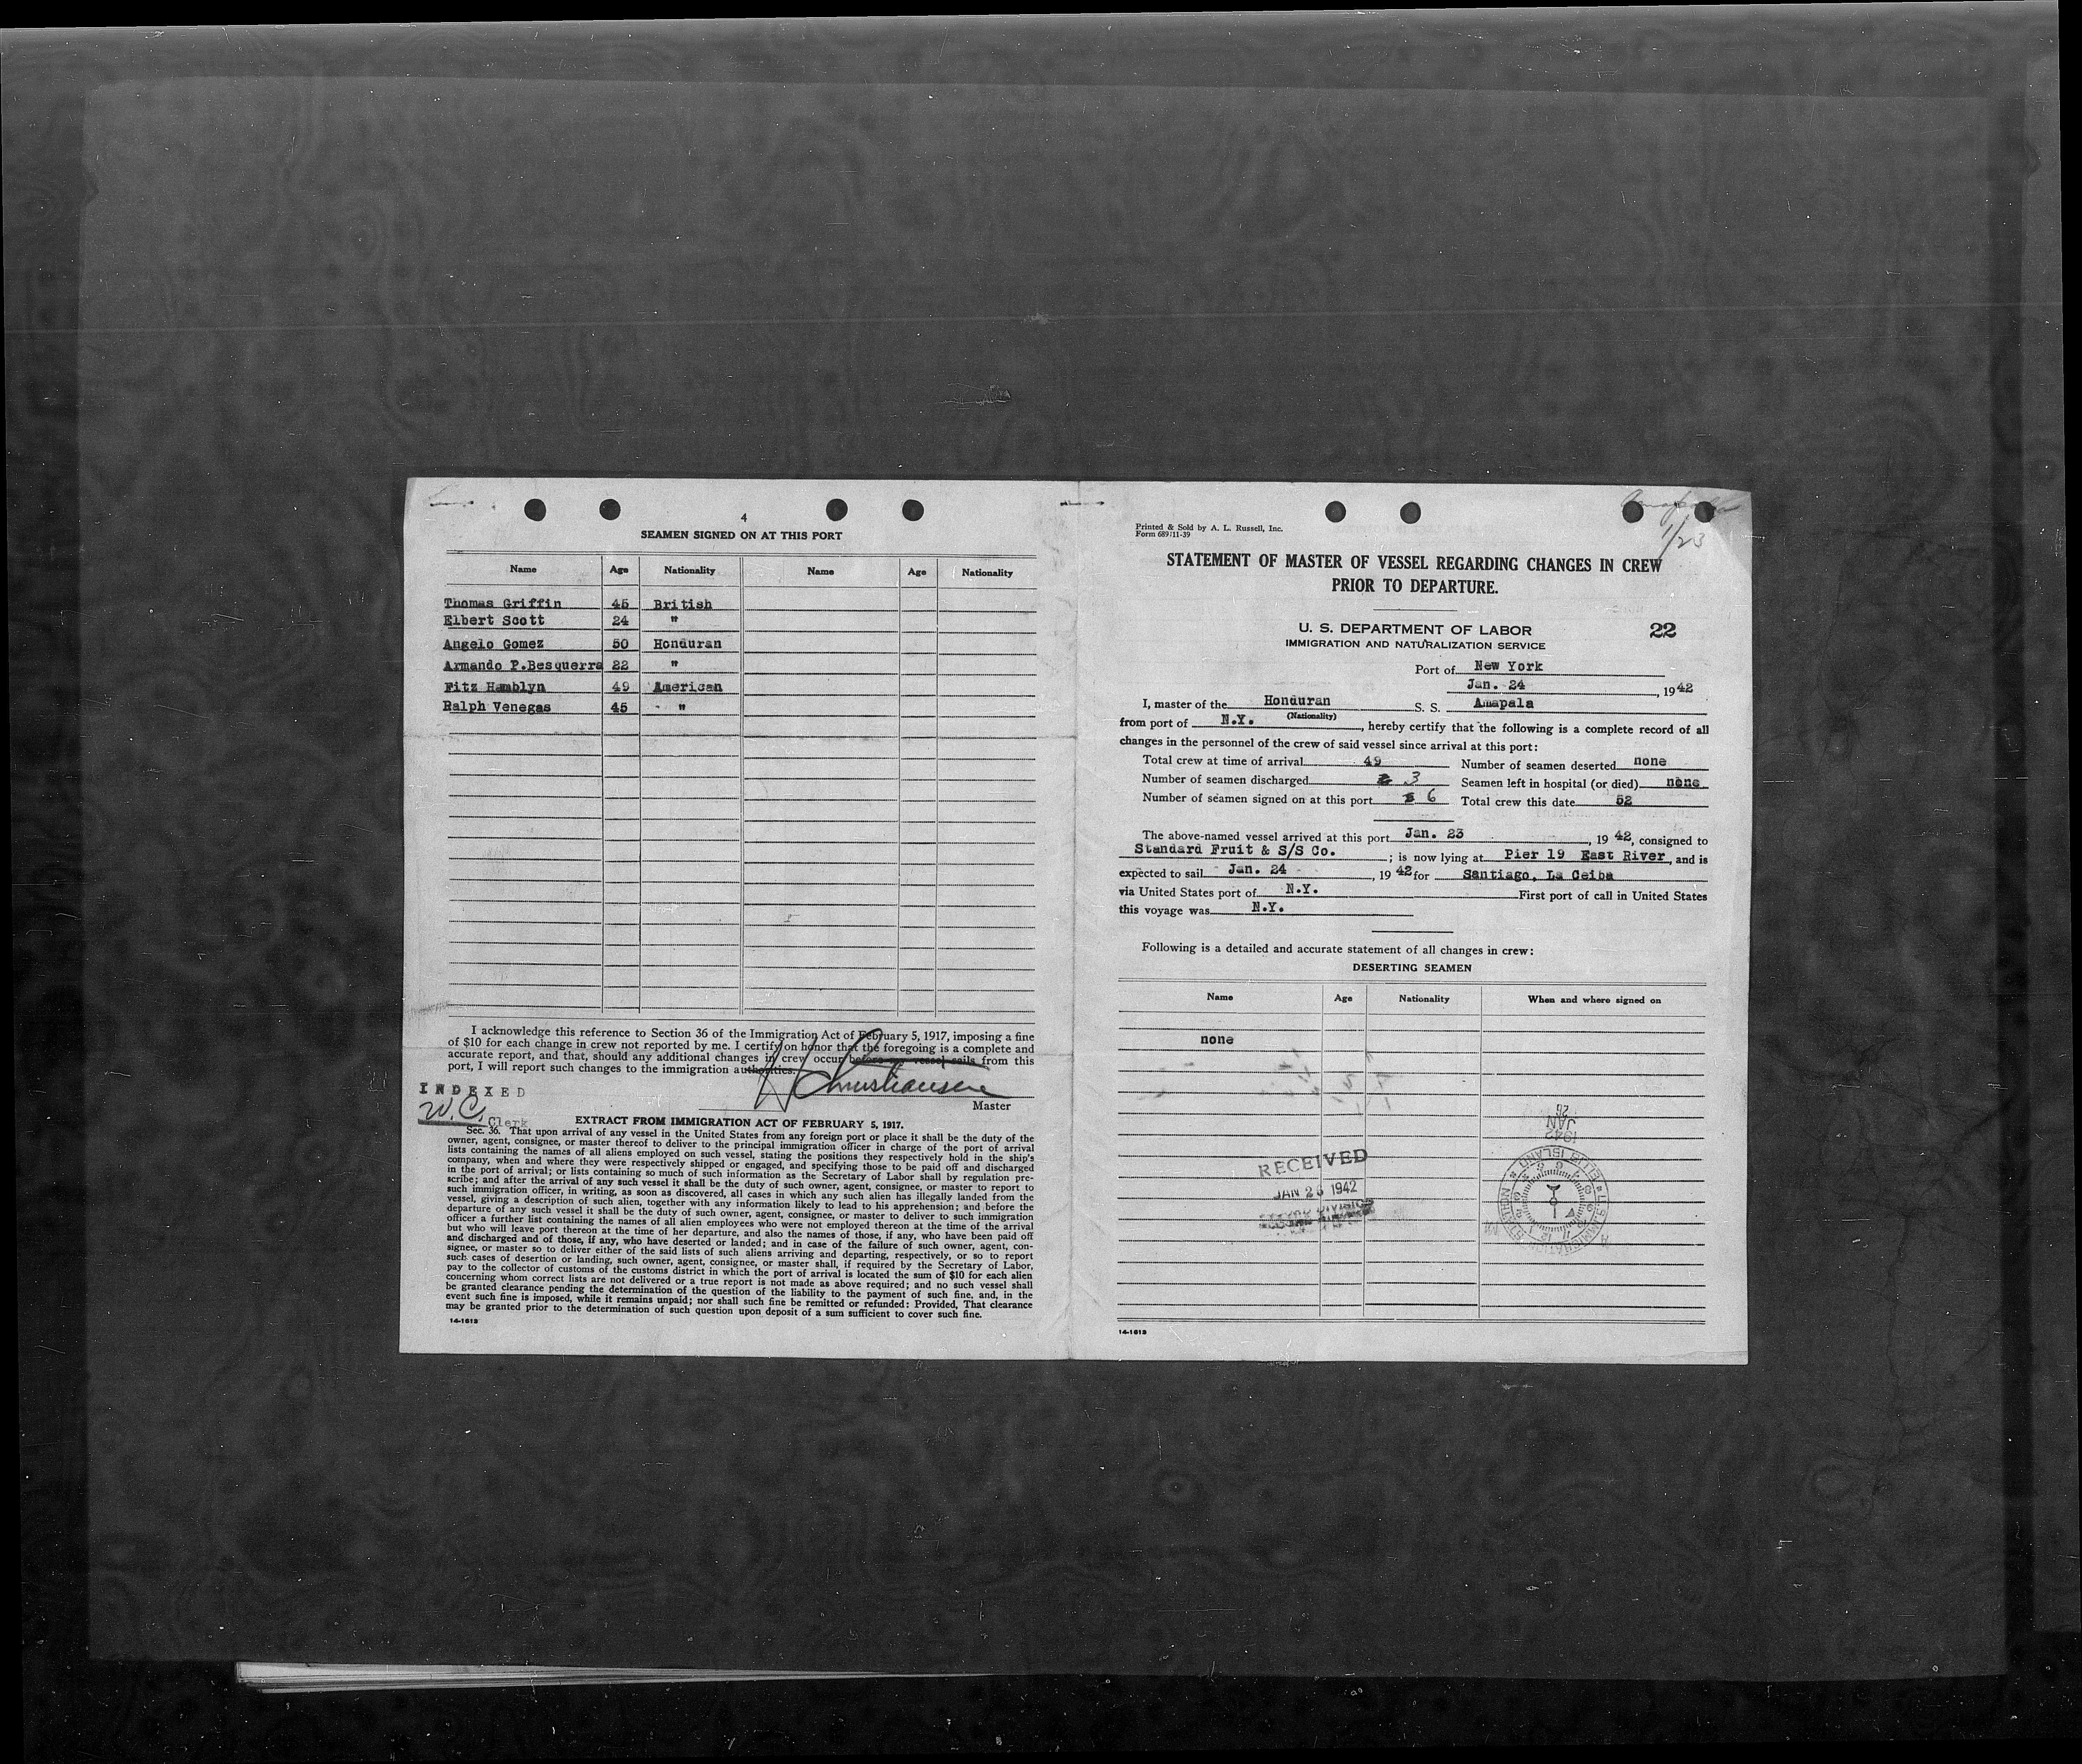 4
SEAMEN SIGNED ON AT THIS PORT
Name Age Nationality Name Age Nationality
Thomas Griffin 45 British
Elbert Scott 24 "
Angelo Gomez 50 Honduran
Armando P.Besquerra 22 "
Fitz Hamblyn 49 American
Ralph Venegas 45 "
I acknowledge this reference to Section 36 of the Immigration Act of February 5, 1917, imposing a fine
of $10 for each change in crew not reported by me. I certify on honor that the foregoing is a complete and
accurate report, and that, should any additional changes in crew occur before my vessel sails from this
port, I will report such changes to the immigration authorities.
Christiansen
Master
INDEXED
W.C. Clerk
EXTRACT FROM IMMIGRATION ACT OF FEBRUARY 5, 1917.
Sec. 36. That upon arrival of any vessel in the United States from any foreign port or place it shall be the duty of the
owner, agent, consignee, or master thereof to deliver to the principal immigration officer in charge of the port of arrival
lists containing the names of all aliens employed on such vessel, stating the positions they respectively hold in the ship's
company, when and where they were respectively shipped or engaged, and specifying those to be paid off and discharged
in the port of arrival; or lists containing so much of such information as the Secretary of Labor shall by regulation pre-
scribe; and after the arrival of any such vessel it shall be the duty of such owner, agent, consignee, or master to report to
such immigration officer, in writing, as soon as discovered, all cases in which any such alien has illegally landed from the
vessel, giving a description of such alien, together with any information likely to lead to his apprehension; and before the
departure of any such vessel it shall be the duty of such owner, agent, consignee, or master to deliver to such immigration
officer a further list containing the names of all alien employees who were not employed thereon at the time of the arrival
but who will leave port thereon at the time of her departure, and also the names of those, if any, who have been paid off
and discharged and of those, if any, who have deserted or landed; and in case of the failure of such owner, agent, con-
signee, or master so to deliver either of the said lists of such aliens arriving and departing, respectively, or so to report
such cases of desertion or landing, such owner, agent, consignee, or master shall, if required by the Secretary of Labor,
pay to the collector of customs of the customs district in which the port of arrival is located the sum of $10 for each alien
concerning whom correct lists are not delivered or a true report is not made as above required; and no such vessel shall
be granted clearance pending the determination of the question of the liability to the payment of such fine, and, in the
event such fine is imposed, while it remains unpaid; nor shall such fine be remitted or refunded: Provided, That clearance
may be granted prior to the determination of such question upon deposit of a sum sufficient to cover such fine.
14-1613
1/23
Printed & Sold by A. L. Russell, Inc.
Form 689/11-39
STATEMENT OF MASTER OF VESSEL REGARDING CHANGES IN CREW
PRIOR TO DEPARTURE.
U. S. DEPARTMENT OF LABOR 22
IMMIGRATION AND NATURALIZATION SERVICE
Port of New York
Jan. 24, 1942
I, master of the Honduran S. S. Amapala
(Nationality)
from port of N.Y., hereby certify that the following is a complete record of all
changes in the personnel of the crew of said vessel since arrival at this port:
Total crew at time of arrival 49 Number of seamen deserted none
Number of seamen discharged 3 Seamen left in hospital (or died) none
Number of seamen signed on at this port 6 Total crew this date 52
The above-named vessel arrived at this port Jan. 23, 1942, consigned to
Standard Fruit & S/S Co.; is now lying at Pier 19 East River, and is
expected to sail Jan. 24, 1942 for Santiago, La Ceiba
via United States port of N.Y. First port of call in United States
this voyage was N.Y.
Following is a detailed and accurate statement of all changes in crew:
DESERTING SEAMEN
Name Age Nationality When and where signed on
none
1942
JAN
26
RECEIVED
JAN 26 1942
U.S. IMMIGRATION STATION ELLIS ISLAND
14-1613